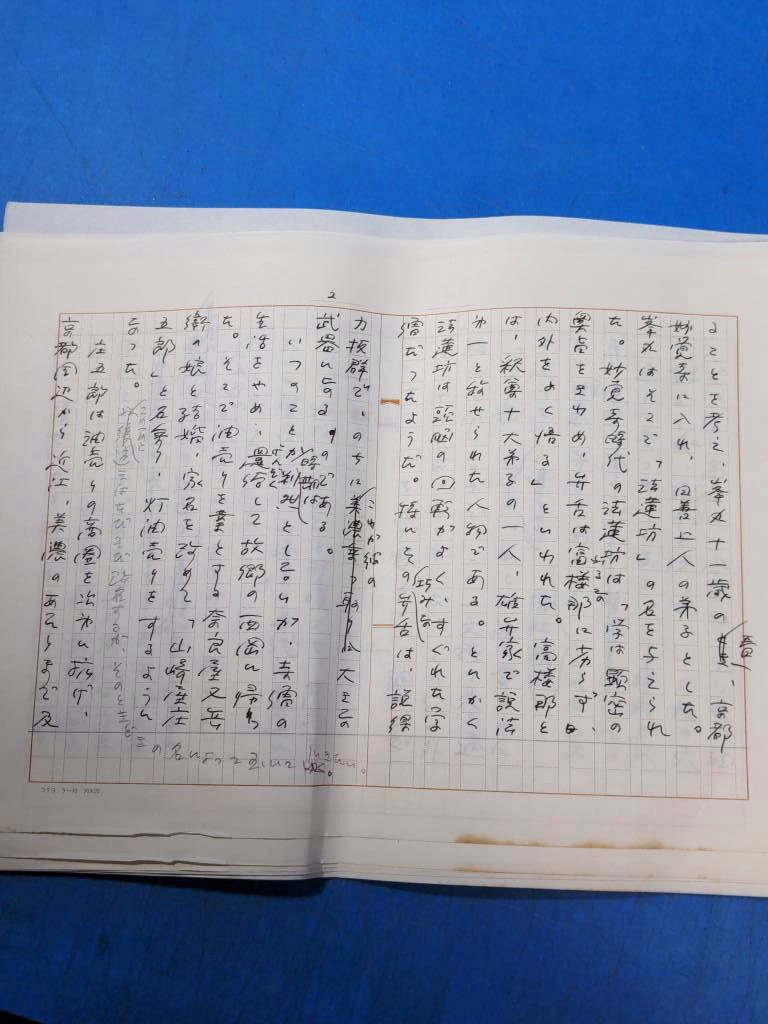 2
ることを考え、峯丸十一歳の春、京都
妙覚寺に入れ、日善上人の弟子とした。
峯丸はそこで「法蓮坊」の名を与えられ
た。妙覚寺時代の法蓮坊は「学は顕密の
奥旨をきわめ、弁舌は富楼那にも劣らず、
内外をよく悟る」といわれた。富楼那と
は、釈尊十大弟子の一人、雄弁家で説法
第一と称せられた人物である。とにかく
法蓮坊は頭脳の回転がよく、すぐれた学
僧だったようだ。特にその巧みな弁舌は、説得
力抜群で、のちにこれが彼の美濃乗っ取りに大きな
武器になるのである。
いつのことか時期は判然としないが、寺僧の
生活をやめ、還俗して故郷の西岡に帰っ
げんぞく
た。そこで油売りを業とする奈良屋又兵
衛の娘と結婚、家名を改めて「山崎屋庄
五郎」と名乗り、灯油売りをするように
なった。
このあと
その名によって記していきたい。
庄五郎は油売りの商圏を次第に拡げ、
京都周辺から近江、美濃のあたりまで及
コクヨ ケー10 20×20